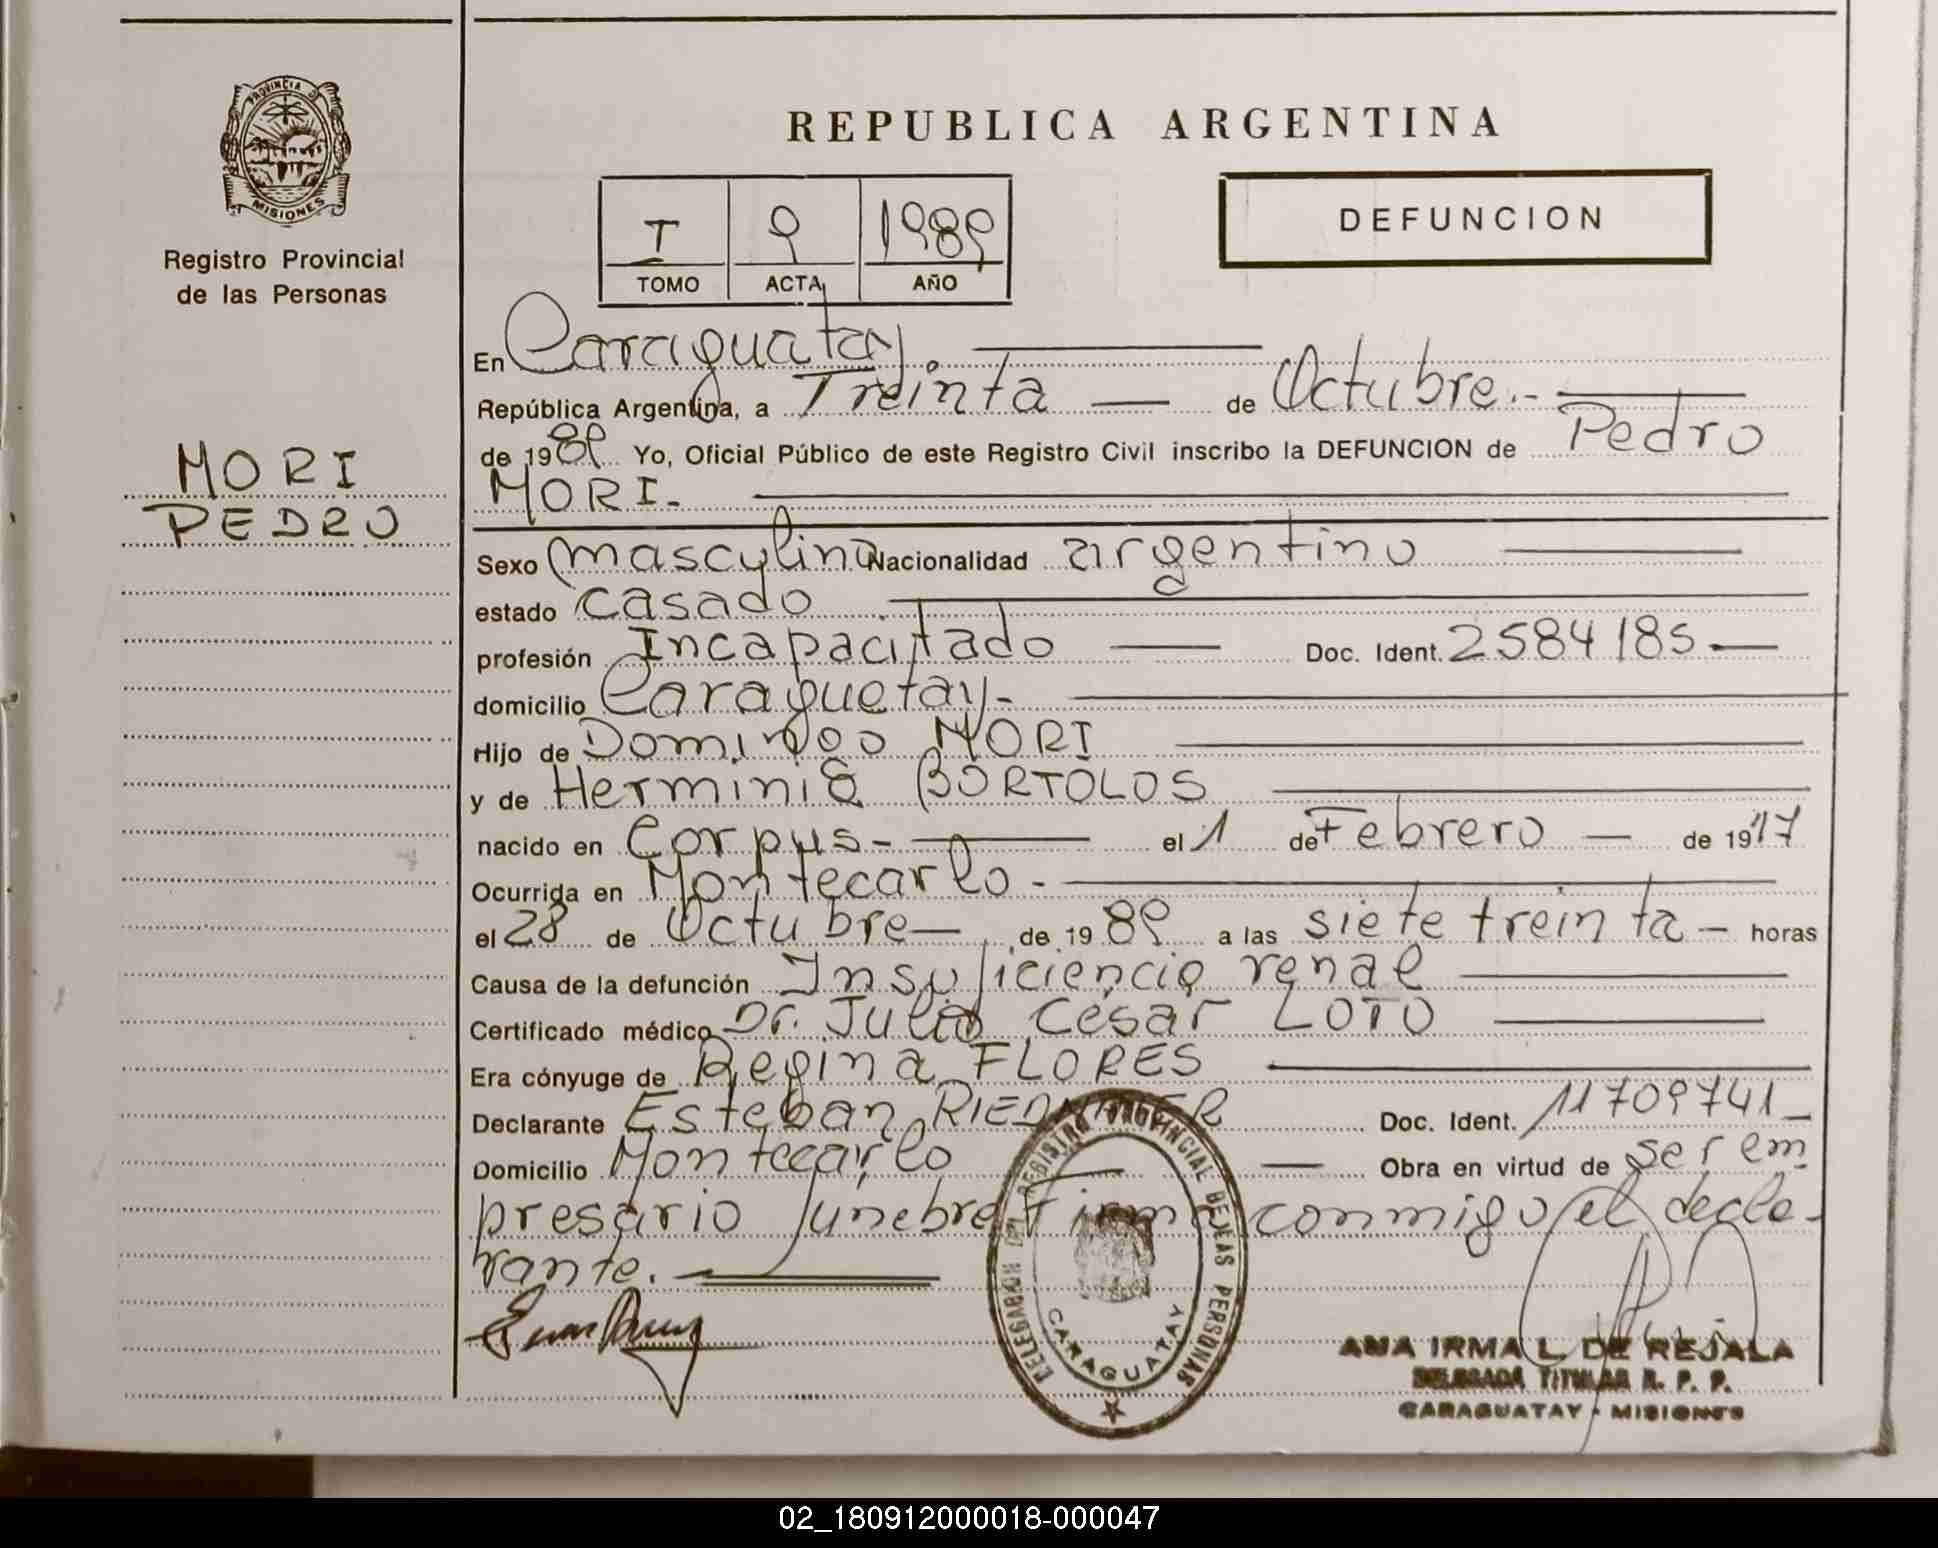 PROVINCIA D
MISIONES
Registro Provincial
de las Personas
MORI
PEDRO
REPUBLICA ARGENTINA
I 9 1989
TOMO ACTA AÑO
DEFUNCION
En Caraguatay.
República Argentina, a Treinta — de Octubre.-
de 1989 Yo, Oficial Público de este Registro Civil inscribo la DEFUNCION de Pedro
MORI.-
Sexo masculino Nacionalidad argentino
estado casado
profesión Incapacitado — Doc. Ident. 2584185 —
domicilio Caraguatay-
Hijo de Domingo MORI
y de Herminia BORTOLOS
nacido en Corpus- el 1 de Febrero — de 1917
Ocurrida en Montecarlo -
el 28 de Octubre — de 1989 a las siete treinta — horas
Causa de la defunción Insuficiencia renal
Certificado médico Dr. Julio César LOTO
Era cónyuge de Regina FLORES
Declarante Esteban Doc. Ident. 11709741-
Domicilio Montecarlo — Obra en virtud de ser em
presario fúnebre Firma conmigo el decla-
rante.
DELEGACION DEL REGISTRO PROVINCIAL DE LAS PERSONAS
CARAGUATAY
ANA IRMA L. DE REJALA
DELEGADA TITULAR R. P. P.
CARAGUATAY - MISIONES
02_180912000018-000047